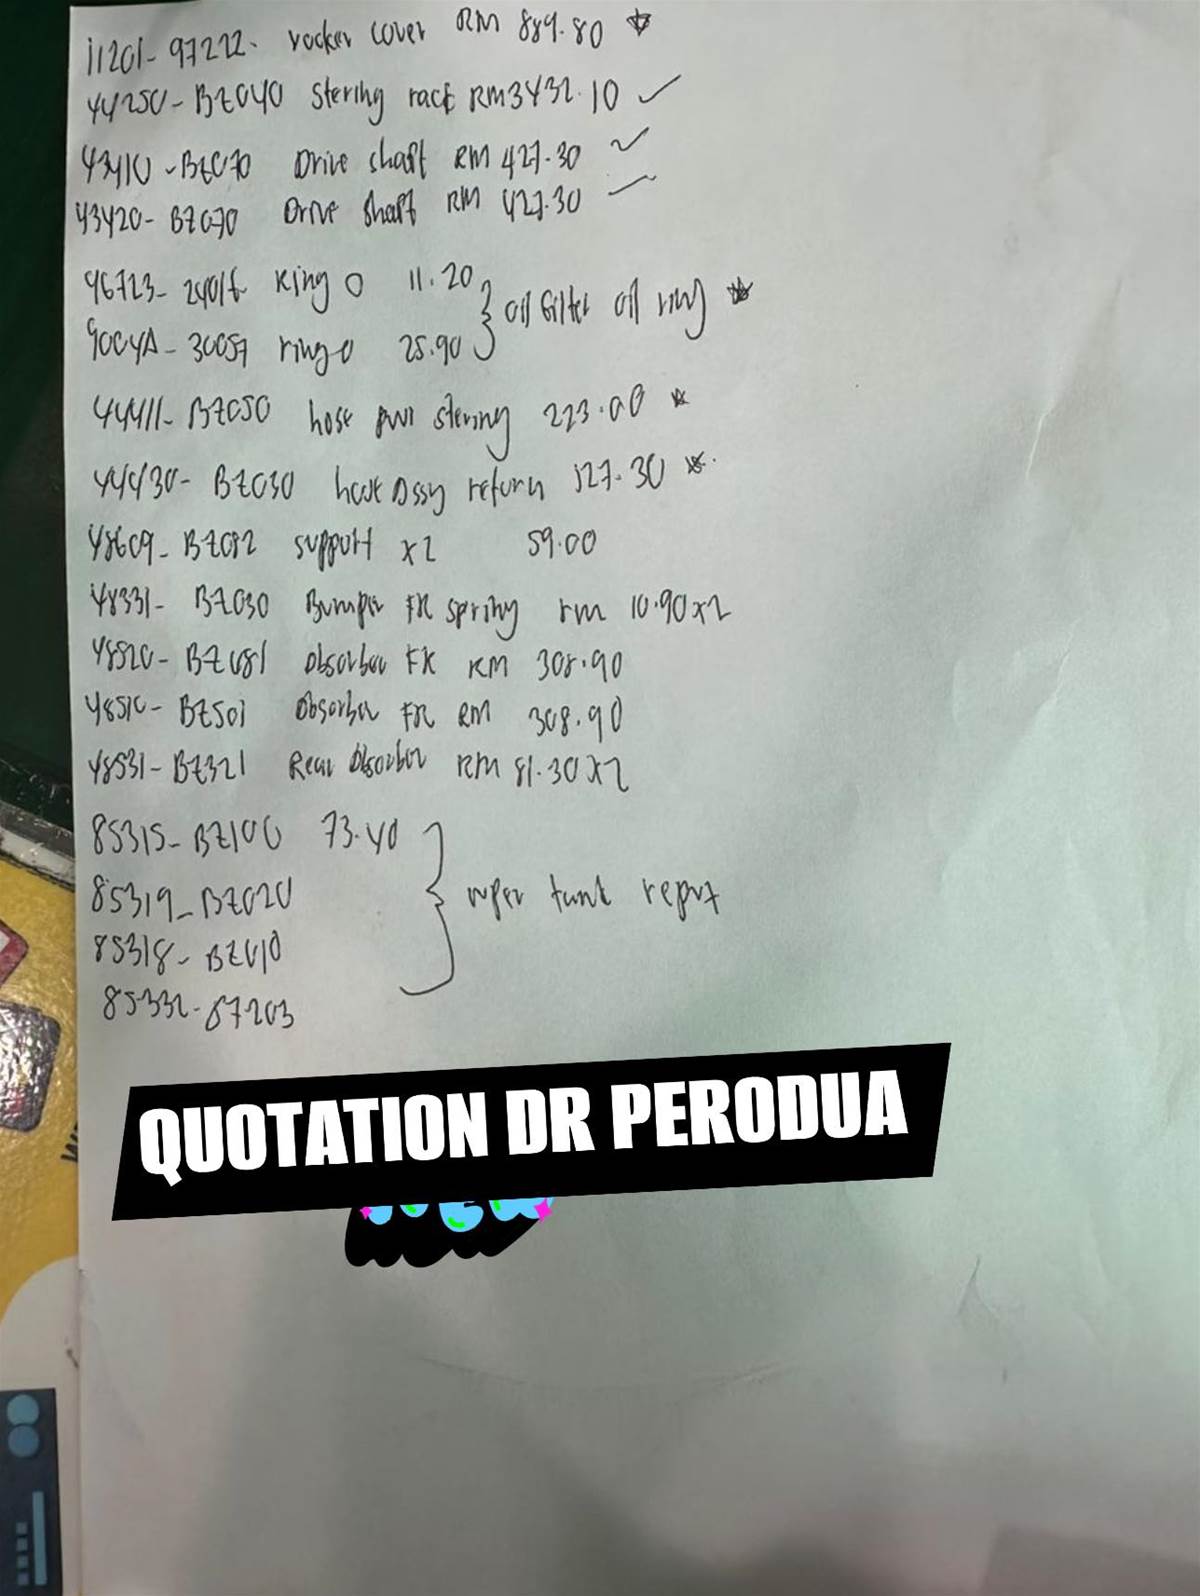 11201-97222- rocker cover RM 889.80
44250-BZ040 stering rack RM3432.10
43410-BZ070 Drive shaft RM 427.30
43420-BZ070 Drive shaft RM 427.30
96723- Ring O 11.20
900YA-30057 ringo 25.90
oil filter oil ring
44411-BZ050 hose pwr stering 223.00
44430-BZ030 hose Assy return 127.30
48609-BZ082 support x2 59.00
48331-BZ030 Bumper FR spring rm 10.90x2
48520-BZ081 Absorber FR RM 308.90
48510-BZ501 Absorber FR RM 308.90
48531-BZ321 Rear Absorber RM 81.30x2
85315-BZ100 73.40
85319-BZ020
85318-BZ010
85332-87203
wiper tank
QUOTATION DR PERODUA